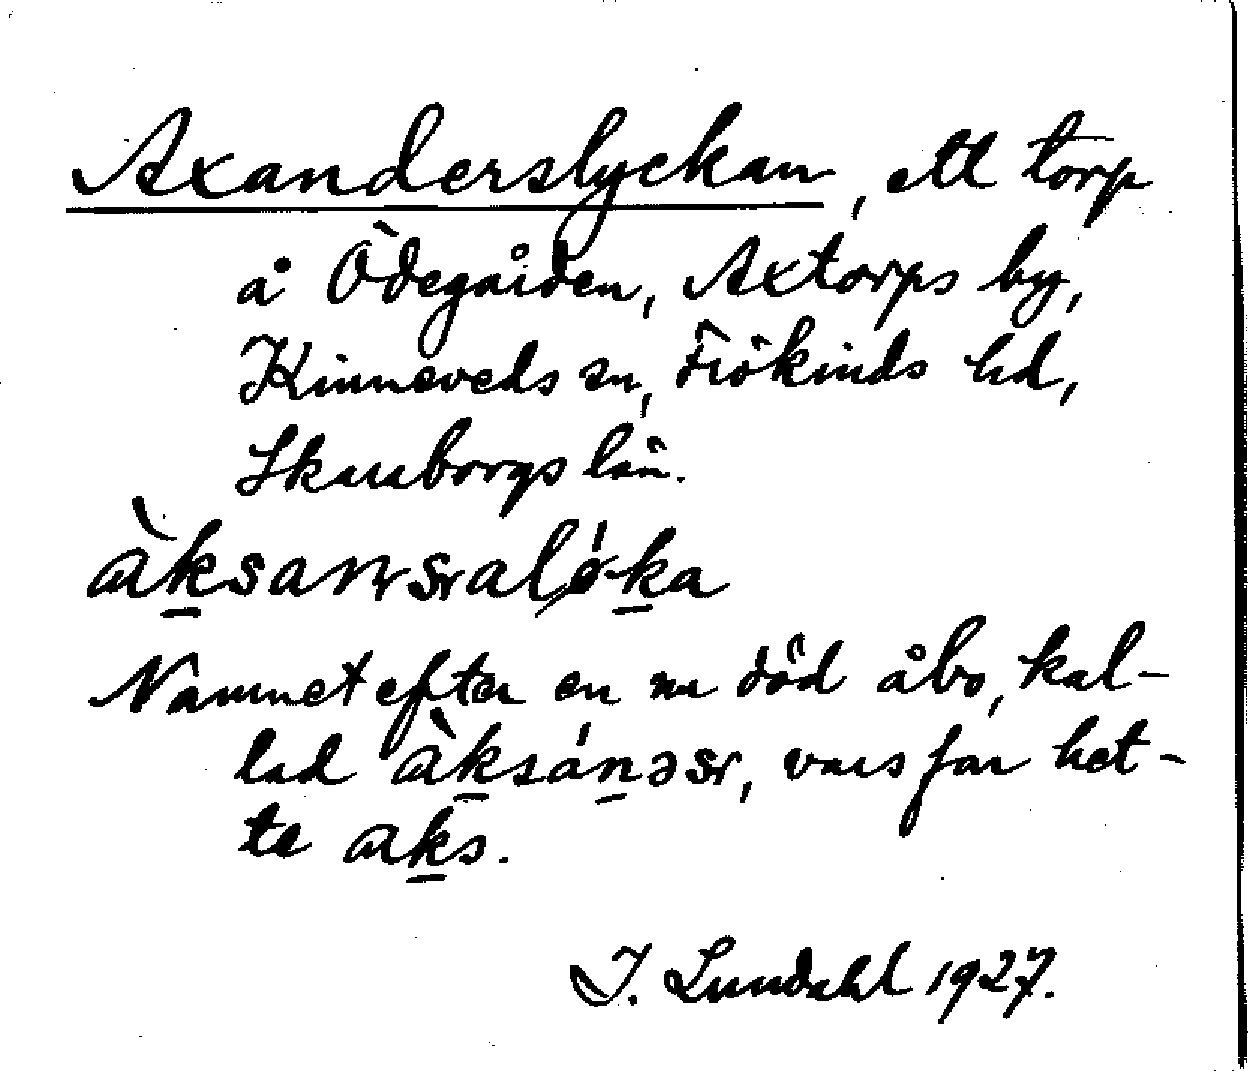 Axanderslyckan, ett torp
å Ödegården, Axtorps by,
Kinneveds sn, Frökinds hd,
Skaraborgs län.
Namnet efter en nu död åbo, kal-
lad àksánəsr, vars far het-
te aks.
I. Lundahl 1927.